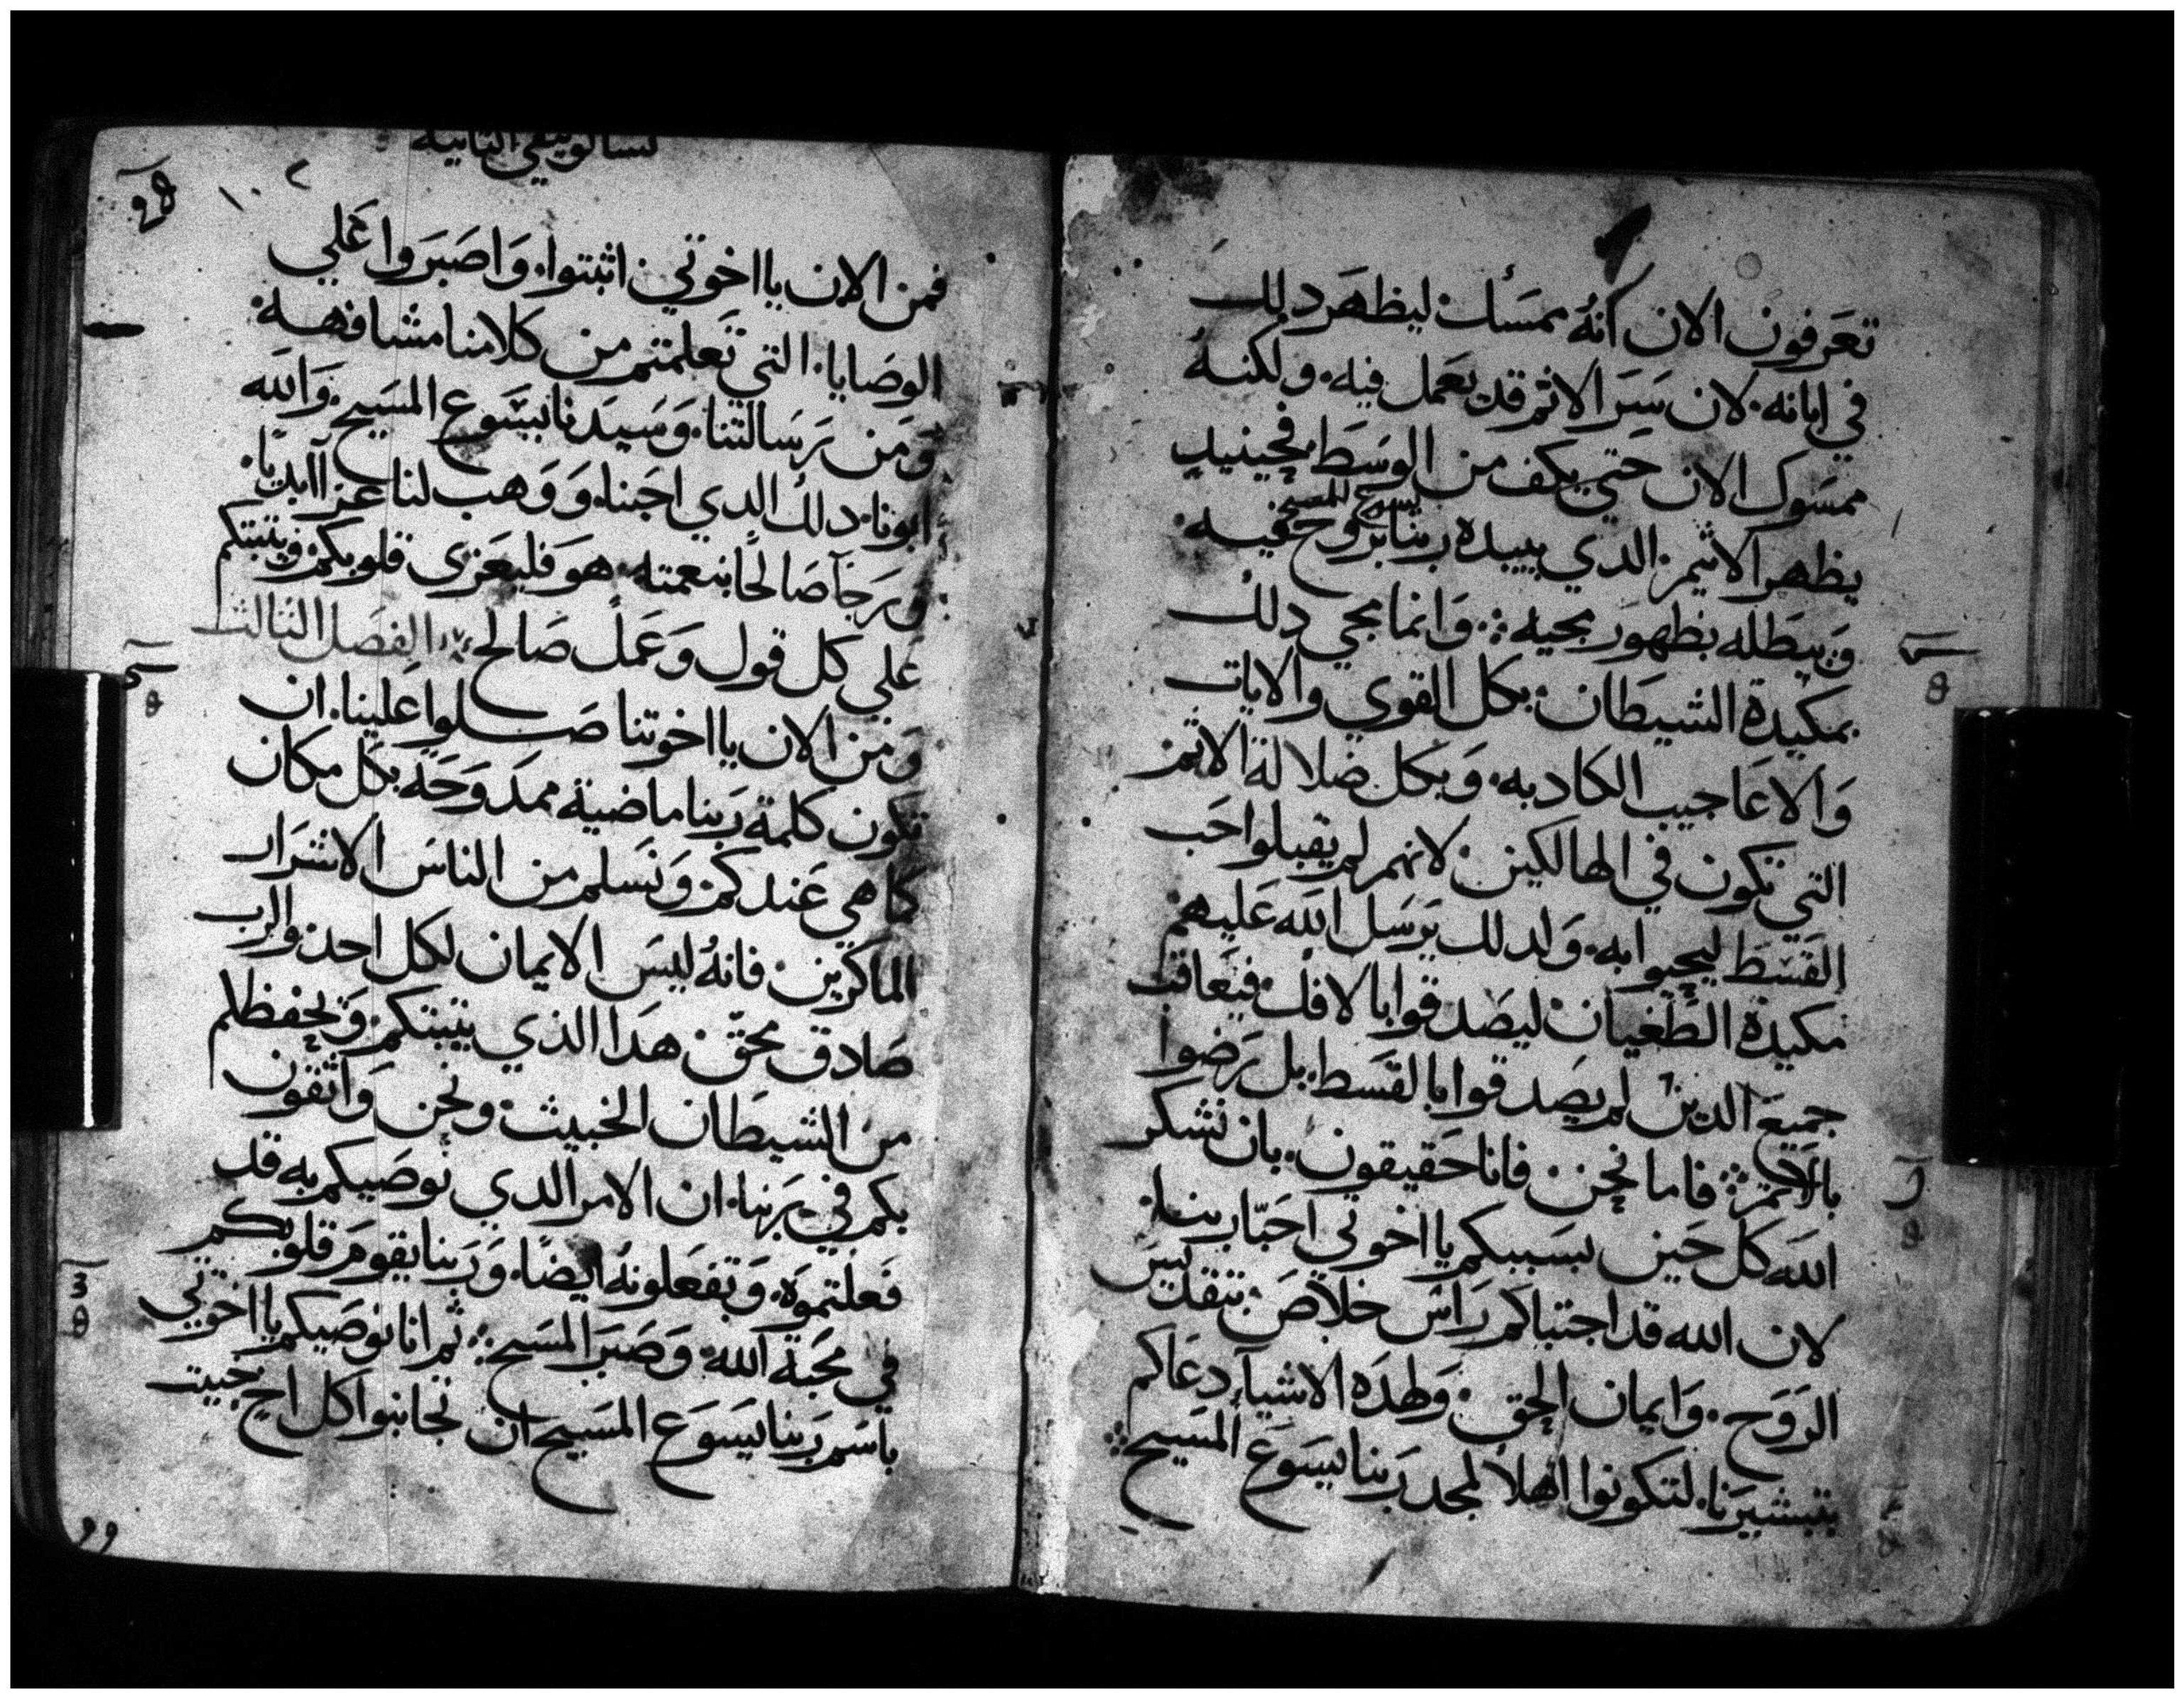 تعرفون الان انه ممسك ليظهر دلك
في ابانه لان سر الاثم قد يعمل فيه ولكنه
ممسوك الان حتي يكف من الوسط فحينيد
يظهر الاثيم الدي يبيده ربنا يسوع المسيح بروح فيه
ويبطله بظهور مجيه وانما مجي دلك
بمكيدة الشيطان بكل القوي والايات
والاعاجيب الكادبه وبكل ضلالة الاثم
التي تكون في الهالكين لانهم لم يقبلوا حب
القسط ليحيوا به ولدلك يرسل الله عليهم
مكيدة الطغيان ليصدقوا بالافك فيعاقب
جميع الدين لم يصدقوا بالقسط بل رضوا
بالاثم فاما نحن فانا حقيقون بان نشكر
الله كل حين بسببكم يا اخوتي احبا ربنا
لان الله قد اجتباكم راس خلاص بتقديس
الروح وايمان الحق ولهده الاشيا دعاكم
بتبشيرنا لتكونوا اهلا لمجد ربنا يسوع المسيح
تسالونيقي التانيه
فمن الان يا اخوتي اثبتوا واصبروا علي
الوصايا التي تعلمتم من كلامنا مشافهه
ومن رسالتنا وسيدنا يسوع المسيح والله
ابونا دلك الدي احبنا ووهب لنا عزا ابديا
ورجآ صالحا بنعمته هو فليعزي قلوبكم ويثبتكم
علي كل قول وعمل صالح الفصل الثالث
ومن الان يا اخوتنا صلوا علينا ان
تكون كلمة ربنا ماضية ممدوحة بكل مكان
كما هي عندكم ونسلم من الناس الاشرار
الماكرين فانه ليس الايمان لكل احد والرب
صادق محق هدا الذي يثبتكم ويحفظكم
من الشيطان الخبيث ونحن واثقون
بكم في ربنا ان الامر الدي نوصيكم به قد
فعلتموه وتفعلونه ايضا وربنا يقوم قلوبكم
في محبة الله وصبر المسيح ثم انا نوصيكم يا اخوتي
باسم ربنا يسوع المسيح ان تجانبوا كل اخ خبيت